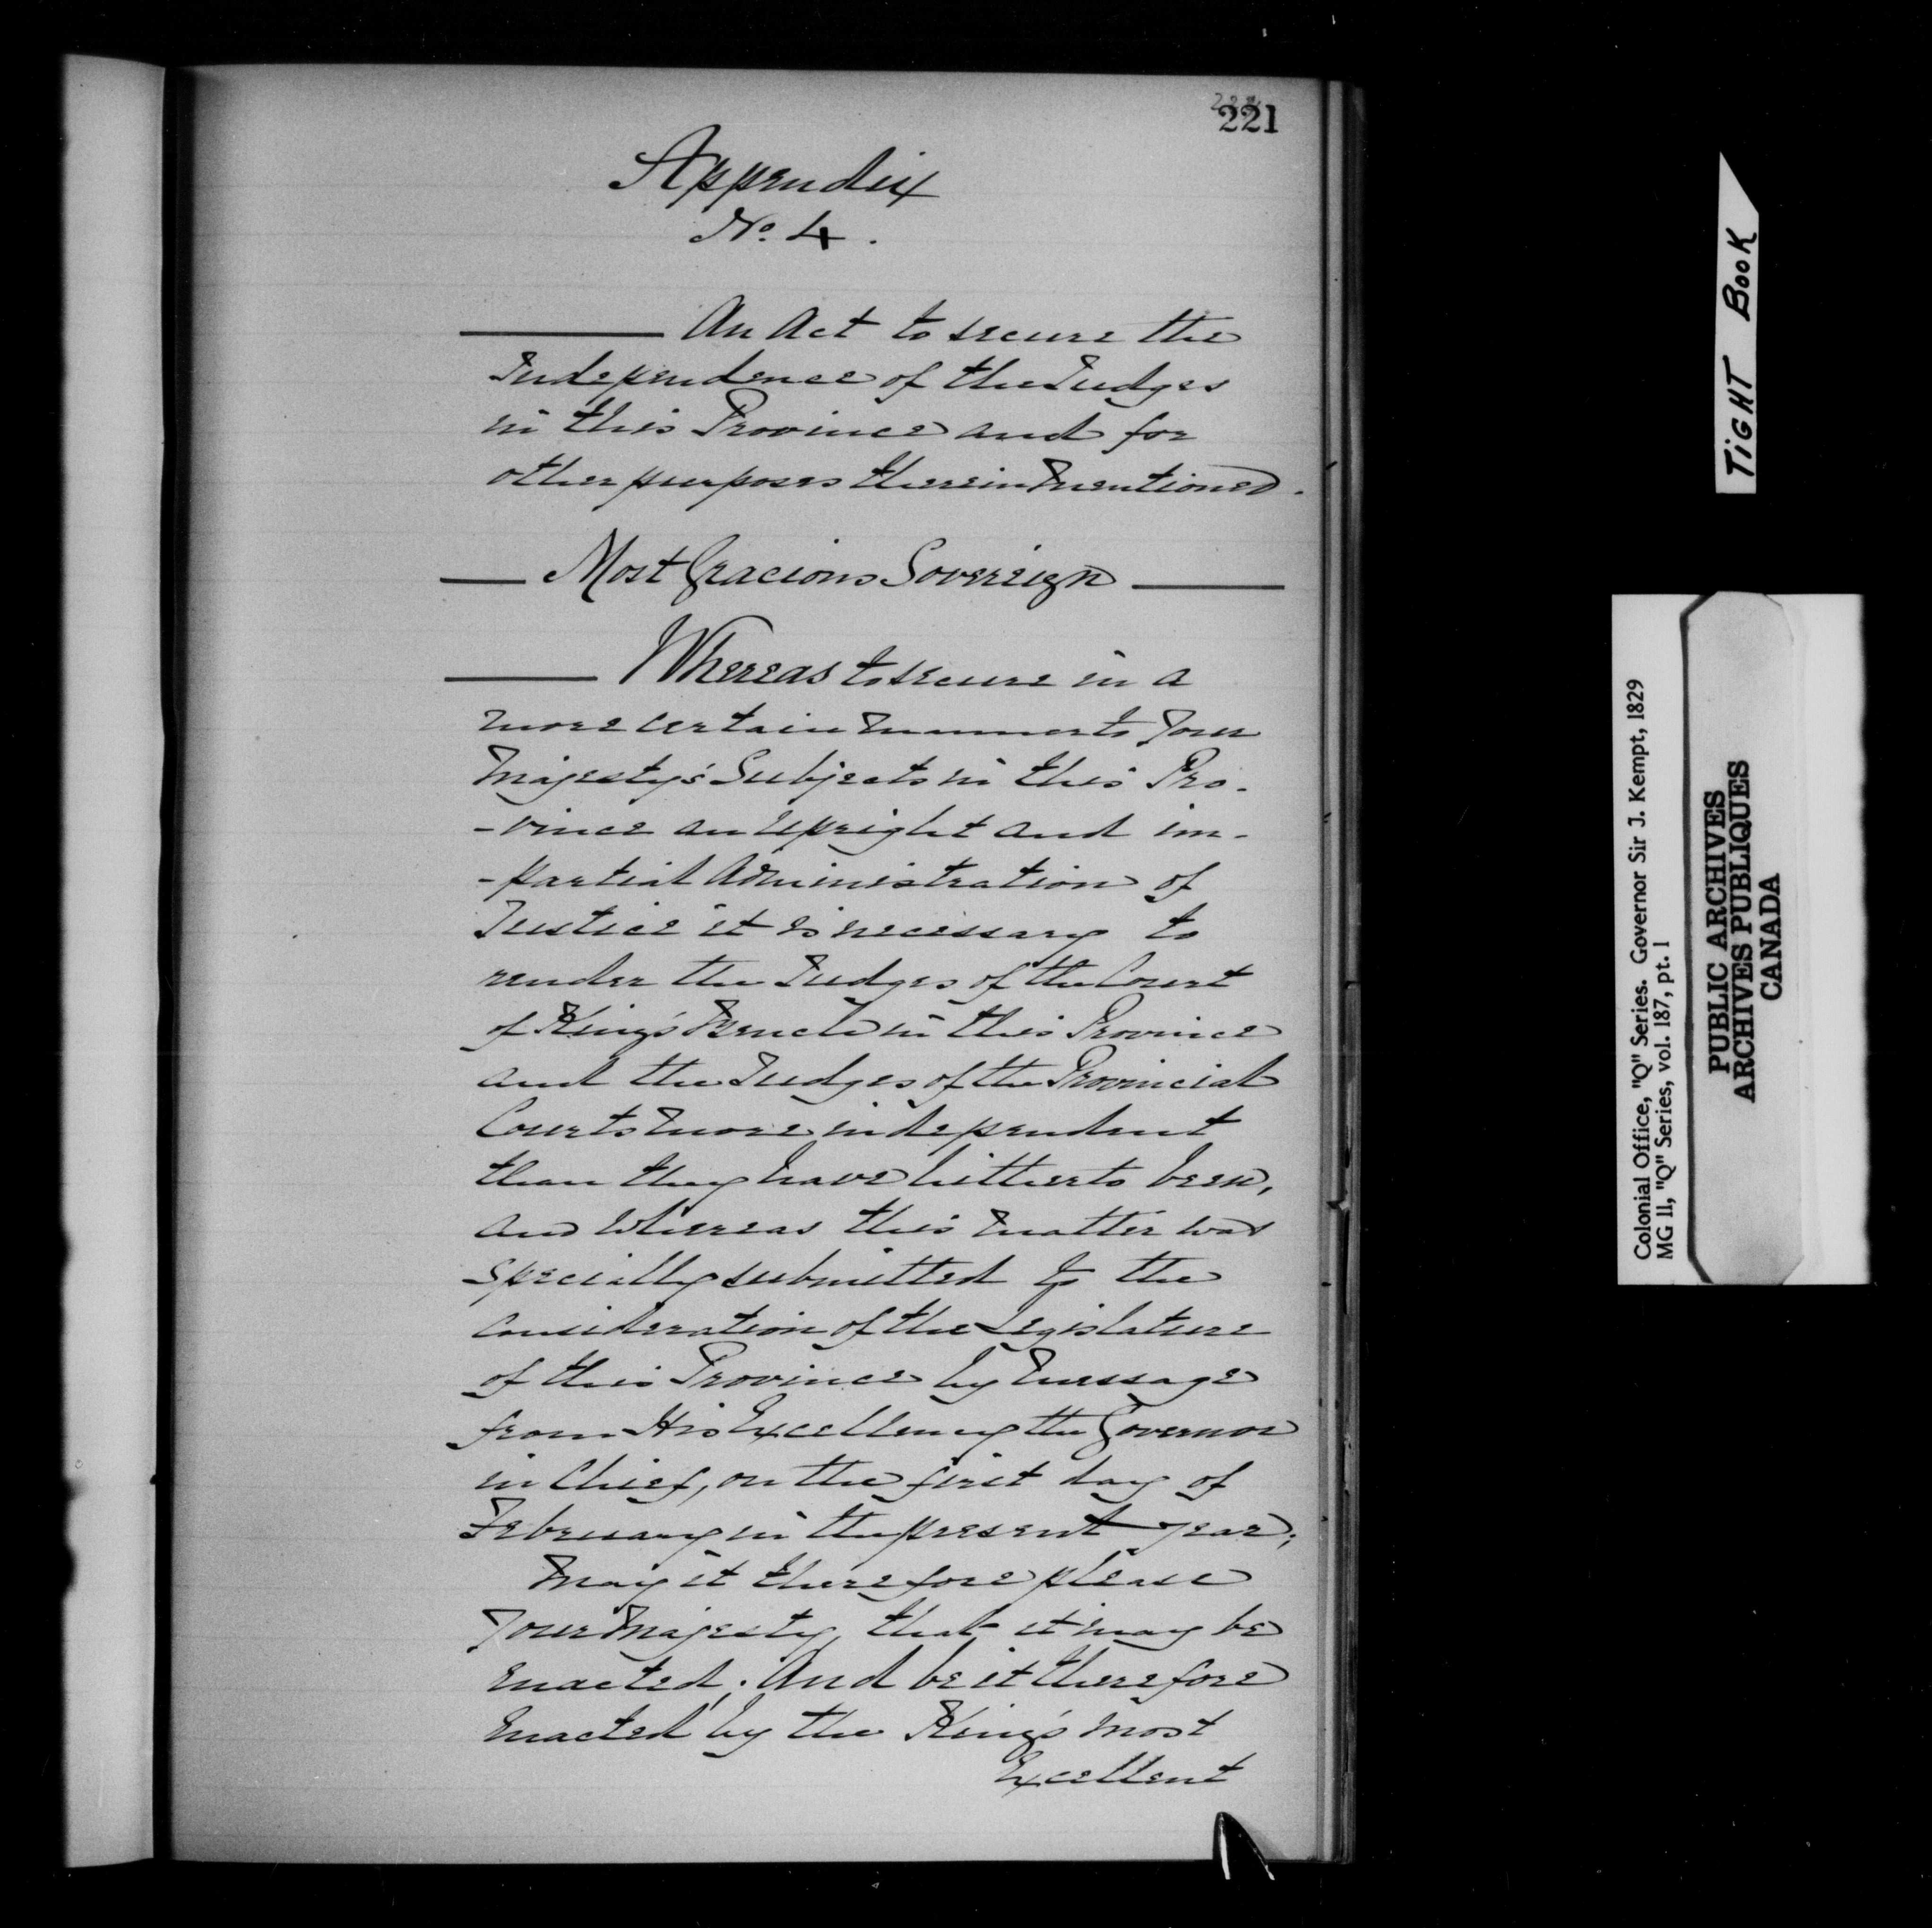 221
Appendix
No. 4.
An Act to secure the
Independence of the Judges
in this Province and for
other purposes therein mentioned.
Most Gracious Sovereign
Whereas to secure in a
more certain manner to Your
Majesty's Subjects in this Pro-
-vince an upright and im-
-partial Administration of
Justice it is necessary to
render the Judges of the Court
of King's Bench in this Province
and the Judges of the Provincial
Courts more independent
than they have hitherto been,
And Whereas this matter was
specially submitted to the
consideration of the Legislature
of this Province by message
from His Excellency the Governor
in Chief, on the first day of
February in the present year;
May it therefore please
Your Majesty, that it may be
enacted; And be it therefore
enacted by the King's most
Excellent
TiGHT BOOK
Colonial Office, "Q" Series. Governor Sir J. Kempt, 1829
MG 11, "Q" Series, vol. 187, pt. 1
PUBLIC ARCHIVES
ARCHIVES PUBLIQUES
CANADA